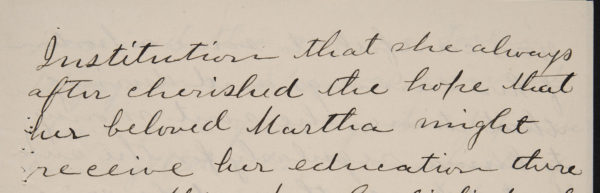 Institution that she always
after cherished the hope that
her beloved Martha might
receive her education there